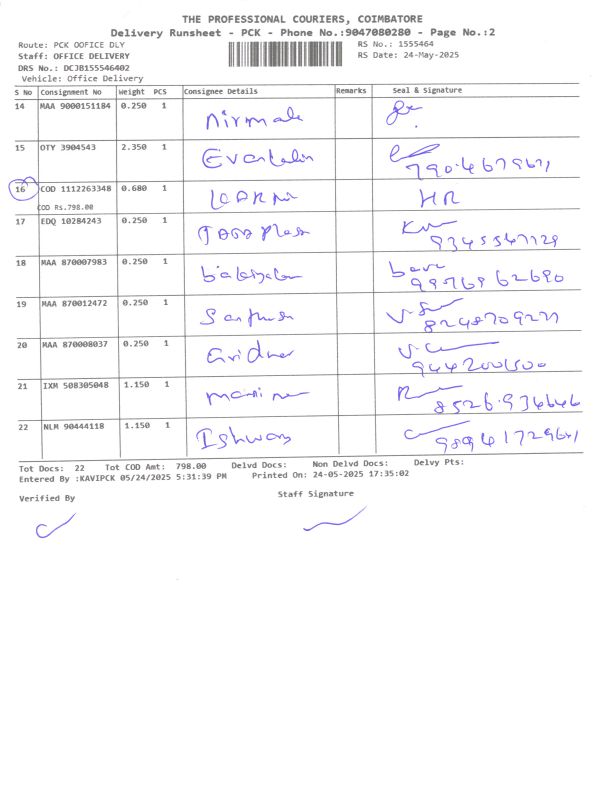 THE PROFESSIONAL COURIERS, COIMBATORE
Delivery Runsheet - PCK - Phone No.:9047080280 - Page No.:2
Route: PCK OOFICE DLY RS No.: 1555464
Staff: OFFICE DELIVERY RS Date: 24-May-2025
DRS No.: DCJB155546402
Vehicle: Office Delivery
S No Consignment No Weight PCS Consignee Details Remarks Seal & Signature
14 MAA 9000151184 0.250 1 Nirmala
15 OTY 3904543 2.350 1
16 COD 1112263348 0.680 1 HR
COD Rs.798.00
17 EDQ 10284243 0.250 1
18 MAA 870007983 0.250 1
19 MAA 870012472 0.250 1
8248709277
20 MAA 870008037 0.250 1
9442001500
21 IXM 508305048 1.150 1
8526934646
22 NLM 90444118 1.150 1 Ishwar
Tot Docs: 22 Tot COD Amt: 798.00 Delvd Docs: Non Delvd Docs: Delvy Pts:
Entered By :KAVIPCK 05/24/2025 5:31:39 PM Printed On: 24-05-2025 17:35:02
Verified By Staff Signature